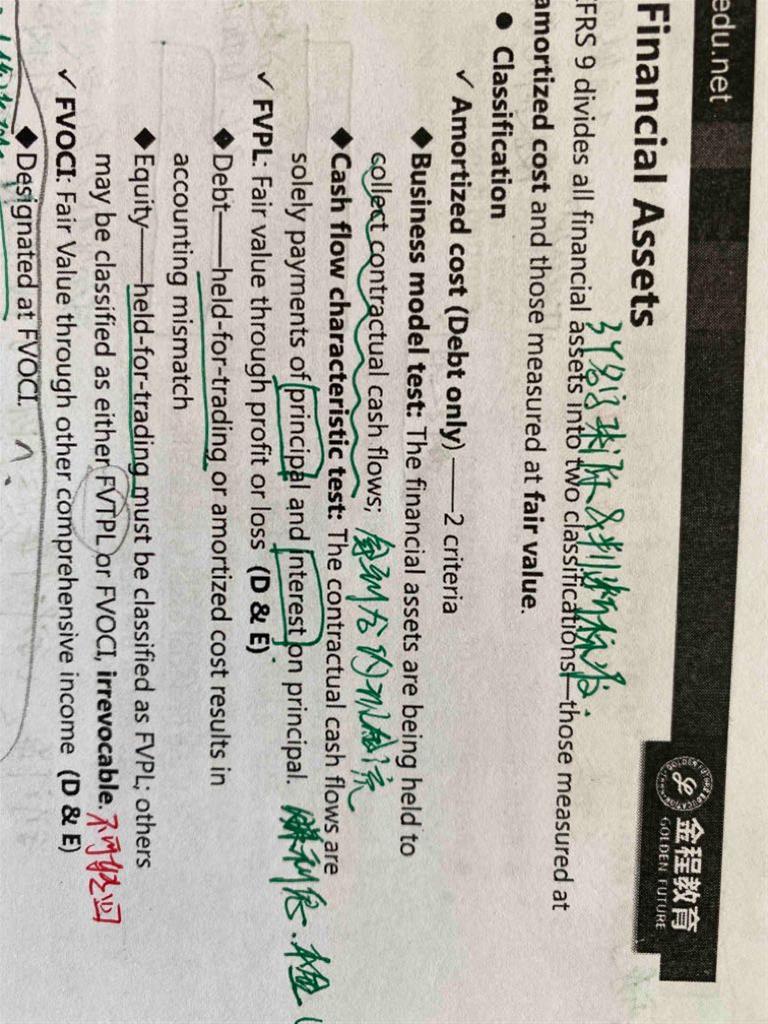 edu.net
金程教育
GOLDEN FUTURE
Financial Assets
FRS 9 divides all financial assets into two classifications—those measured at
amortized cost and those measured at fair value.
● Classification
✓ Amortized cost (Debt only)——2 criteria
◆Business model test: The financial assets are being held to
collect contractual cash flows;
◆Cash flow characteristic test: The contractual cash flows are
solely payments of principal and interest on principal. 赚利息.本金
✓ FVPL: Fair value through profit or loss (D & E)
◆Debt——held-for-trading or amortized cost results in
accounting mismatch
◆Equity——held-for-trading must be classified as FVPL; others
may be classified as either FVTPL or FVOCI, irrevocable. 不可撤回
✓ FVOCI: Fair Value through other comprehensive income (D & E)
◆Designated at FVOCI.